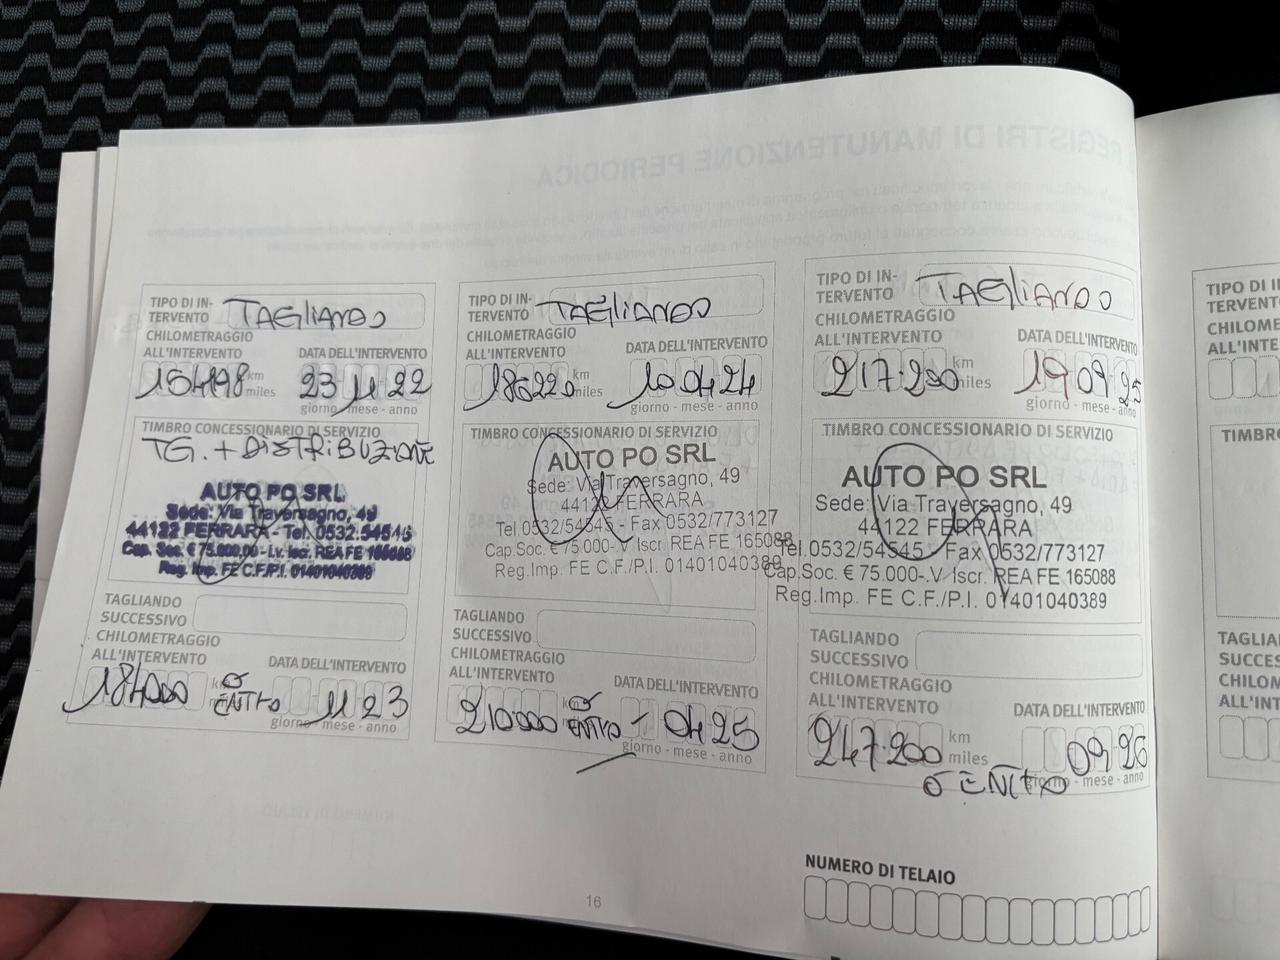 REGISTRI DI MANUTENZIONE PERIODICA
TIPO DI IN-
TERVENTO TAGLIANDO
CHILOMETRAGGIO
ALL'INTERVENTO DATA DELL'INTERVENTO
154198 km miles 23 11 22
giorno - mese - anno
TIMBRO CONCESSIONARIO DI SERVIZIO
TG. + DISTRIBUZIONE
AUTO PO SRL
Sede: Via Traversagno, 49
44122 FERRARA - Tel. 0532.54545
Cap. Soc. € 75.000,00 - I.v. Iscr. REA FE 165088
Reg. Imp. FE C.F./P.I. 01401040389
TAGLIANDO
SUCCESSIVO
CHILOMETRAGGIO
ALL'INTERVENTO DATA DELL'INTERVENTO
184000 km O ENTRO 11 23
giorno - mese - anno
TIPO DI IN-
TERVENTO TAGLIANDO
CHILOMETRAGGIO
ALL'INTERVENTO DATA DELL'INTERVENTO
186220 km miles 10 04 24
giorno - mese - anno
TIMBRO CONCESSIONARIO DI SERVIZIO
AUTO PO SRL
Sede: Via Traversagno, 49
44122 FERRARA
Tel.0532/54545 - Fax 0532/773127
Cap.Soc. € 75.000-.V Iscr. REA FE 165088
Reg.Imp. FE C.F./P.I. 01401040389
TAGLIANDO
SUCCESSIVO
CHILOMETRAGGIO
ALL'INTERVENTO DATA DELL'INTERVENTO
210000 km O ENTRO - 04 25
giorno - mese - anno
TIPO DI IN-
TERVENTO TAGLIANDO
CHILOMETRAGGIO
ALL'INTERVENTO DATA DELL'INTERVENTO
217.200 km miles 19 09 25
giorno - mese - anno
TIMBRO CONCESSIONARIO DI SERVIZIO
AUTO PO SRL
Sede: Via Traversagno, 49
44122 FERRARA
Tel.0532/54545 - Fax 0532/773127
Cap.Soc. € 75.000-.V Iscr. REA FE 165088
Reg.Imp. FE C.F./P.I. 01401040389
TAGLIANDO
SUCCESSIVO
CHILOMETRAGGIO
ALL'INTERVENTO DATA DELL'INTERVENTO
247.200 km miles 09 26
O ENTRO giorno - mese - anno
NUMERO DI TELAIO
16
TIPO DI I
TERVENTO
CHILOME
ALL'INTE
TIMBRO
TAGLIAN
SUCCESS
CHILOM
ALL'INT